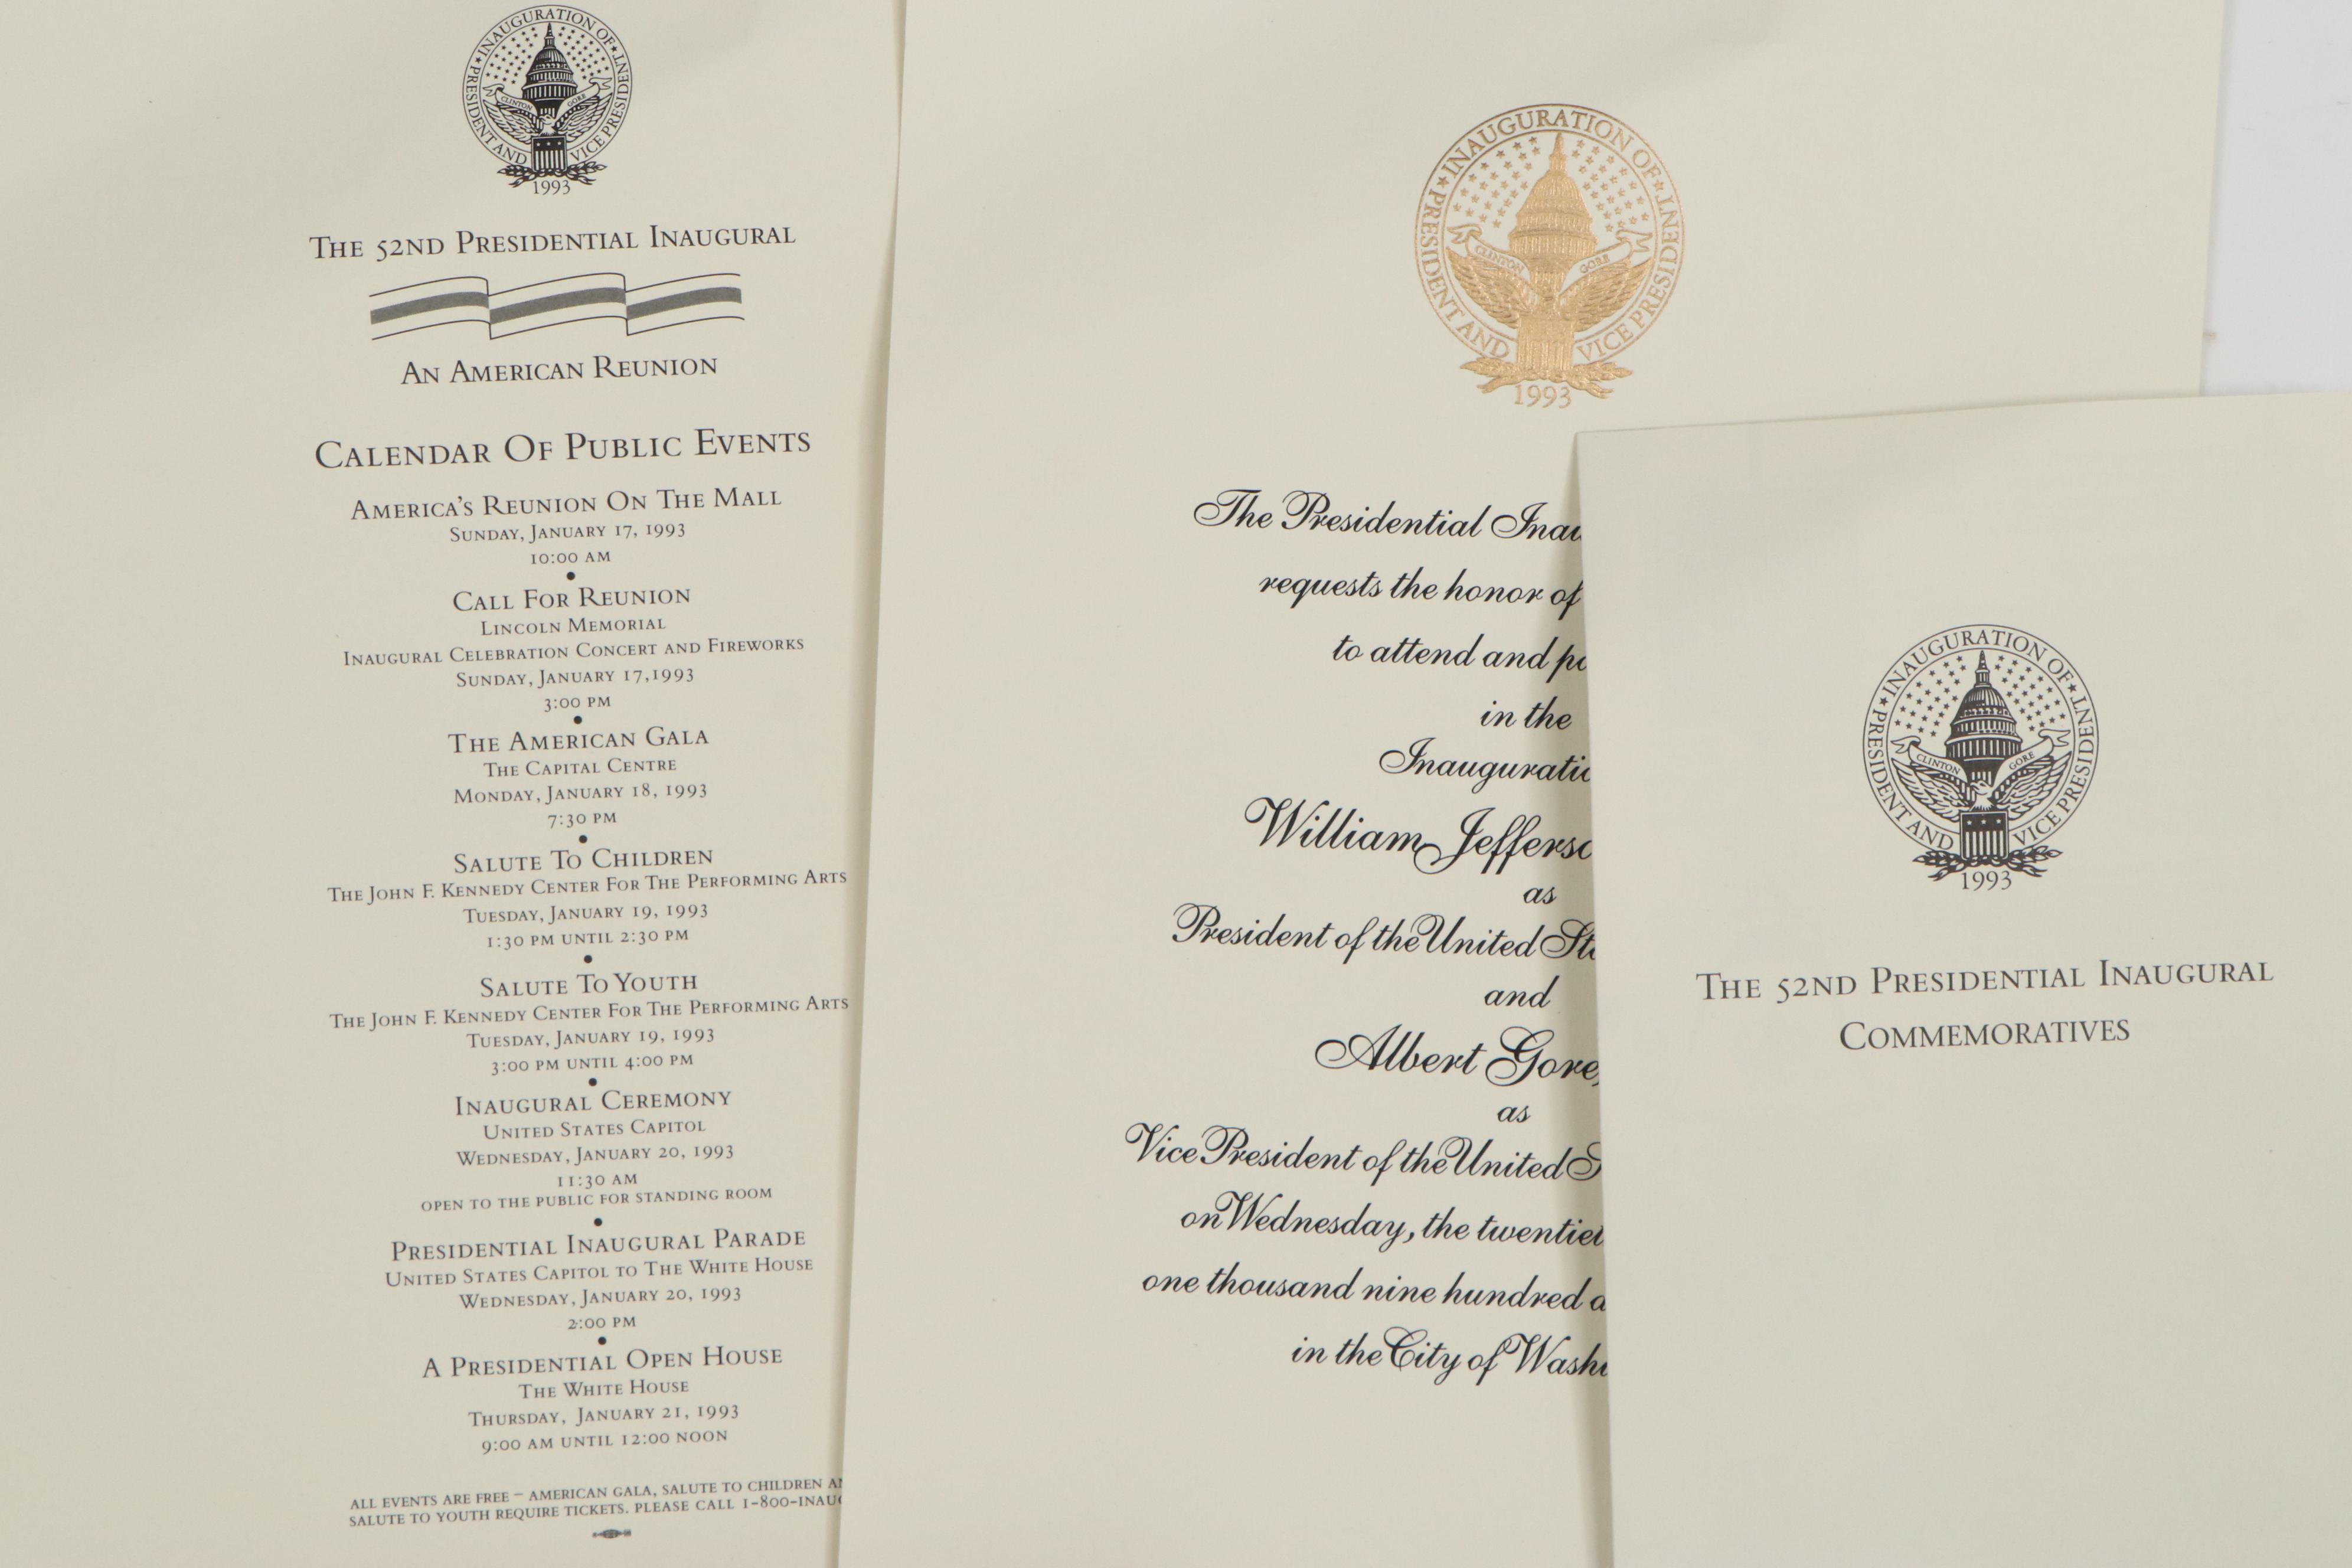 INAUGURATION OF
PRESIDENT AND VICE PRESIDENT
CLINTON GORE
1993
THE 52ND PRESIDENTIAL INAUGURAL
AN AMERICAN REUNION
CALENDAR OF PUBLIC EVENTS
AMERICA'S REUNION ON THE MALL
SUNDAY, JANUARY 17, 1993
10:00 AM
CALL FOR REUNION
LINCOLN MEMORIAL
INAUGURAL CELEBRATION CONCERT AND FIREWORKS
SUNDAY, JANUARY 17,1993
3:00 PM
THE AMERICAN GALA
THE CAPITAL CENTRE
MONDAY, JANUARY 18, 1993
7:30 PM
SALUTE TO CHILDREN
THE JOHN F. KENNEDY CENTER FOR THE PERFORMING ARTS
TUESDAY, JANUARY 19, 1993
1:30 PM UNTIL 2:30 PM
SALUTE TO YOUTH
THE JOHN F. KENNEDY CENTER FOR THE PERFORMING ARTS
TUESDAY, JANUARY 19, 1993
3:00 PM UNTIL 4:00 PM
INAUGURAL CEREMONY
UNITED STATES CAPITOL
WEDNESDAY, JANUARY 20, 1993
11:30 AM
OPEN TO THE PUBLIC FOR STANDING ROOM
PRESIDENTIAL INAUGURAL PARADE
UNITED STATES CAPITOL TO THE WHITE HOUSE
WEDNESDAY, JANUARY 20, 1993
2:00 PM
A PRESIDENTIAL OPEN HOUSE
THE WHITE HOUSE
THURSDAY, JANUARY 21, 1993
9:00 AM UNTIL 12:00 NOON
ALL EVENTS ARE FREE – AMERICAN GALA, SALUTE TO CHILDREN
SALUTE TO YOUTH REQUIRE TICKETS. PLEASE CALL 1-800-INAU
INAUGURATION OF
PRESIDENT AND VICE PRESIDENT
CLINTON GORE
1993
The Presidential Inau
requests the honor of
to attend and
in the
Inaugurati
William Jeffers
as
President of the United St
and
Albert Gore,
as
Vice President of the United S
on Wednesday, the twentiet
one thousand nine hundred
in the City of Wash
INAUGURATION OF
PRESIDENT AND VICE PRESIDENT
CLINTON GORE
1993
THE 52ND PRESIDENTIAL INAUGURAL
COMMEMORATIVES